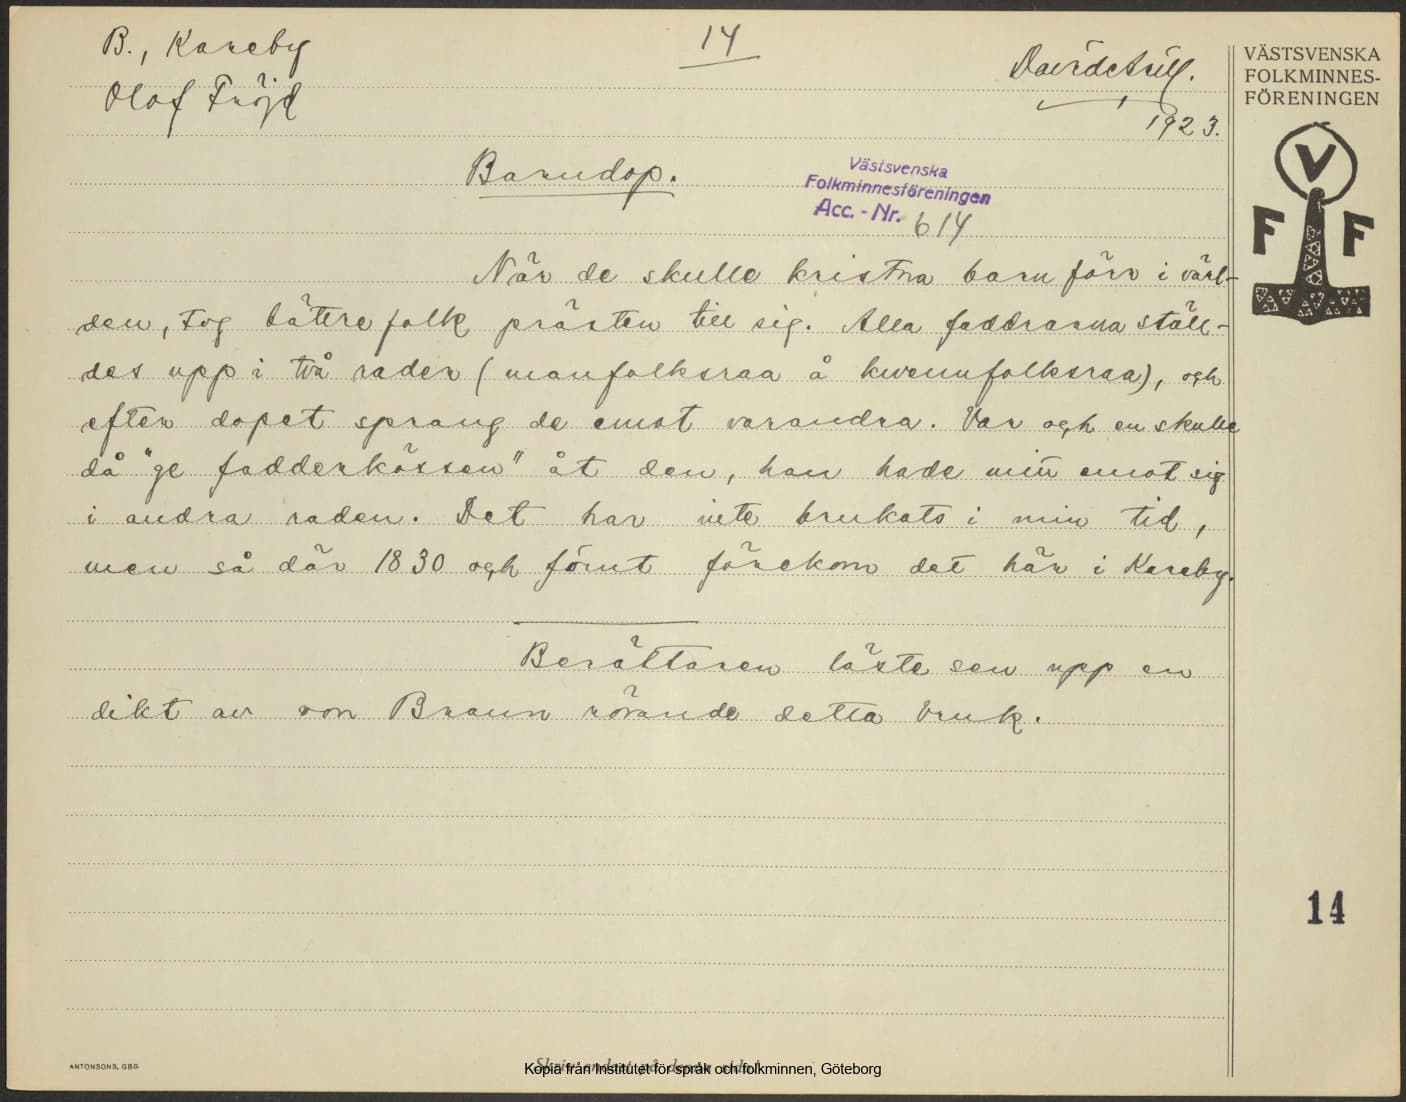 B., Kareby
14
Olof Fröjd
1923.
Barndop.
Västsvenska
Folkminnesföreningen
Acc. - Nr. 614
När de skulle kristna barn förr i värl-
den, tog bättre folk prästen till sig. Alla faddrarna ställ-
des upp i två rader (manfolksraa å kwennfolksraa), och
efter dopet sprang de emot varandra. Var och en skulle
då "ge fadderkössen" åt den, han hade mitt emot sig
i andra raden. Det har inte brukats i min tid,
men så där 1830 och förut förekom det här i Kareby.
Berättaren läste sen upp en
dikt av von Braun rörande detta bruk.
VÄSTSVENSKA
FOLKMINNES-
FÖRENINGEN
V
F F
14
ANTONSONS, GBG
Kopia från Institutet för språk och folkminnen, Göteborg